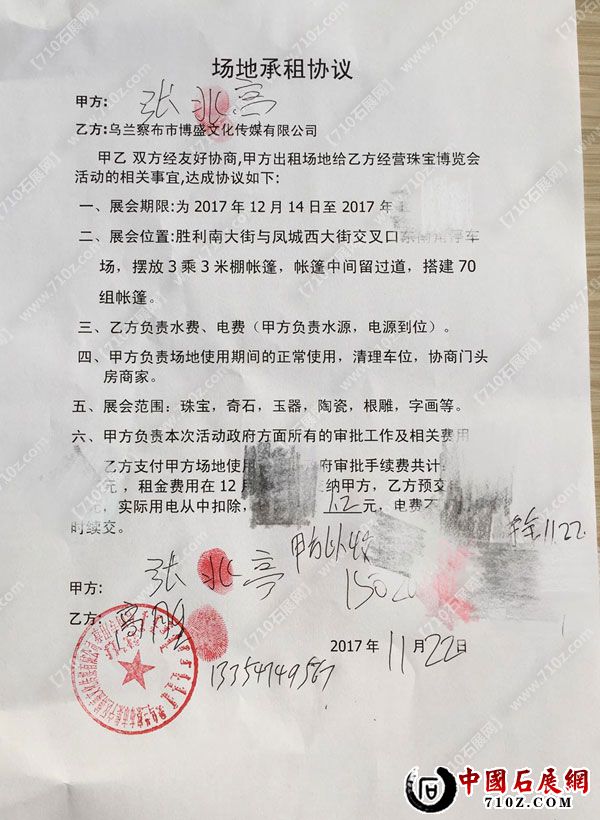 场地承租协议
甲方: 张兆亭
乙方:乌兰察布市博盛文化传媒有限公司
甲乙 双方经友好协商,甲方出租场地给乙方经营珠宝博览会
活动的相关事宜,达成协议如下:
一、展会期限:为 2017 年 12 月 14 日至 2017 年
二、展会位置:胜利南大街与凤城西大街交叉口东南角停车
场，摆放 3 乘 3 米棚帐篷，帐篷中间留过道，搭建 70
组帐篷。
三、乙方负责水费、电费（甲方负责水源，电源到位）。
四、甲方负责场地使用期间的正常使用，清理车位，协商门头
房商家。
五、展会范围：珠宝，奇石，玉器，陶瓷，根雕，字画等。
六、甲方负责本次活动政府方面所有的审批工作及相关费用
乙方支付甲方场地使用 府审批手续费共计:
元，租金费用在 12 月 纳甲方，乙方预交
元，实际用电从中扣除， 1.2 元，电费不
时续交。
11.22
甲方: 张兆亭
150
乙方:
2017 年 11 月 22 日
13354749567
中國石展網
710z.com
【710石展网】
www.710z.com